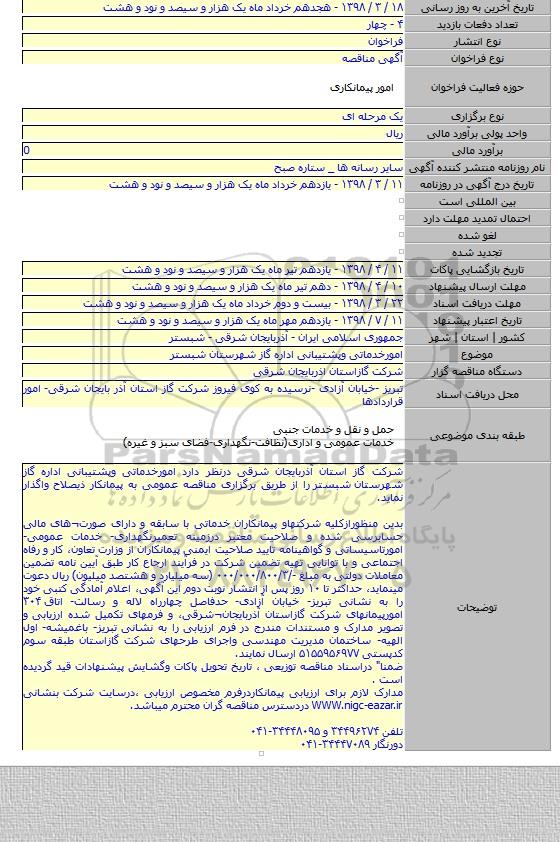 تاریخ آخرین به روز رسانی ۱۸ / ۳ / ۱۳۹۸ - هجدهم خرداد ماه یک هزار و سیصد و نود و هشت
تعداد دفعات بازدید ۴ - چهار
نوع انتشار فراخوان
نوع فراخوان آگهی مناقصه
حوزه فعالیت فراخوان امور پیمانکاری
نوع برگزاری یک مرحله ای
واحد پولی برآورد مالی ریال
برآورد مالی 0
نام روزنامه منتشر کننده آگهی سایر رسانه ها _ ستاره صبح
تاریخ درج آگهی در روزنامه ۱۱ / ۳ / ۱۳۹۸ - یازدهم خرداد ماه یک هزار و سیصد و نود و هشت
بین المللی است
احتمال تمدید مهلت دارد
لغو شده
تجدید شده
تاریخ بازگشایی پاکات ۱۱ / ۴ / ۱۳۹۸ - یازدهم تیر ماه یک هزار و سیصد و نود و هشت
مهلت ارسال پیشنهاد ۱۰ / ۴ / ۱۳۹۸ - دهم تیر ماه یک هزار و سیصد و نود و هشت
مهلت دریافت اسناد ۲۲ / ۳ / ۱۳۹۸ - بیست و دوم خرداد ماه یک هزار و سیصد و نود و هشت
تاریخ اعتبار پیشنهاد ۱۱ / ۷ / ۱۳۹۸ - یازدهم مهر ماه یک هزار و سیصد و نود و هشت
کشور | استان | شهر جمهوری اسلامی ایران - آذربایجان شرقی - شبستر
موضوع امورخدماتی وپشتیبانی اداره گاز شهرستان شبستر
دستگاه مناقصه گزار شرکت گازاستان اذربایجان شرقی
محل دریافت اسناد تبریز -خیابان آزادی -نرسیده به کوی فیروز شرکت گاز استان آذر بایجان شرقی- امور
قراردادها
طبقه بندی موضوعی حمل و نقل و خدمات جنبی
خدمات عمومی و اداری(نظافت-نگهداری-فضای سبز و غیره)
ParsNamadData
توضیحات
شرکت گاز استان آذربایجان شرقی درنظر دارد امورخدماتی وپشتیبانی اداره گاز
شهرستان شبستر را از طریق برگزاری مناقصه عمومی به پیمانکار ذیصلاح واگذار
نماید.
بدین منظورازکلیه شرکتهاو پیمانکاران خدماتی با سابقه و دارای صورت¬های مالی
حسابرسی شده و صلاحیت معتبر درزمینه تعمیرنگهداری- خدمات عمومی-
امورتاسیساتی و گواهینامه تایید صلاحیت ایمنی پیمانکاران از وزارت تعاون، کار و رفاه
اجتماعی و با توانایی تهیه تضمین شرکت در فرآیند ارجاع کار طبق آیین نامه تضمین
معاملات دولتی به مبلغ -/۰۰۰/۰۰۰/۸۰۰/۳ (سه میلیارد و هشتصد میلیون) ریال دعوت
مینماید، حداکثر تا ۱۰ روز پس از انتشار نوبت دوم این آگهی، اعلام آمادگی کتبی خود
را به نشانی تبریز- خیابان آزادی- حدفاصل چهارراه لاله و رسالت- اتاق ۳۰۴
امورپیمانهای شرکت گازاستان آذربایجان¬شرقی، و فرمهای تکمیل شده ارزیابی و
تصویر مدارک و مستندات مندرج در فرم ارزیابی را به نشانی تبریز- باغمیشه- اول
الهیه- ساختمان مدیریت مهندسی واجرای طرحهای شرکت گازاستان طبقه سوم
کدپستی ۵۱۵۵۹۵۶۹۷۷ ارسال نمایند.
ضمنا" دراسناد مناقصه توزیعی ، تاریخ تحویل پاکات وگشایش پیشنهادات قید گردیده
است .
مدارک لازم برای ارزیابی پیمانکاردرفرم مخصوص ارزیابی ،درسایت شرکت بنشانی
WWW.nigc-eazar.ir دردسترس مناقصه گران محترم میباشد.
تلفن ۳۴۴۹۶۲۷۴ و ۳۴۴۴۸۰۹۵-۰۴۱
دورنگار ۳۴۴۴۷۰۸۹-۰۴۱